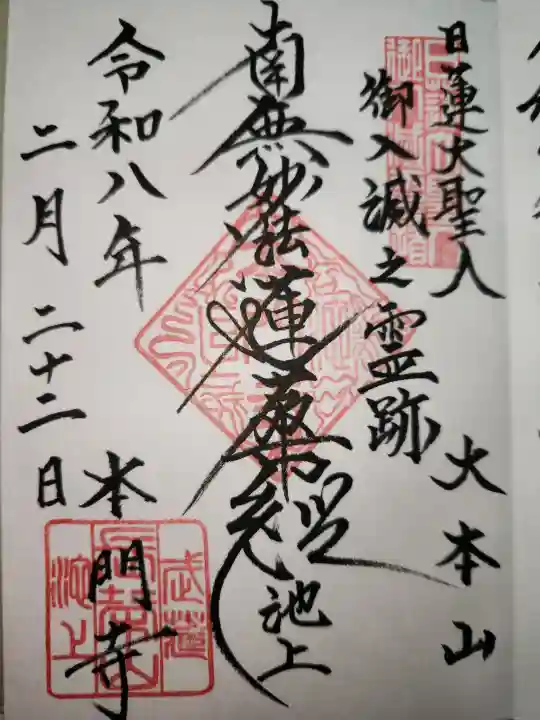 日蓮大聖人
御入滅之霊跡
大本山
池上
南無妙法蓮華経
本門寺
令和八年
二月二十二日
武蔵
池上